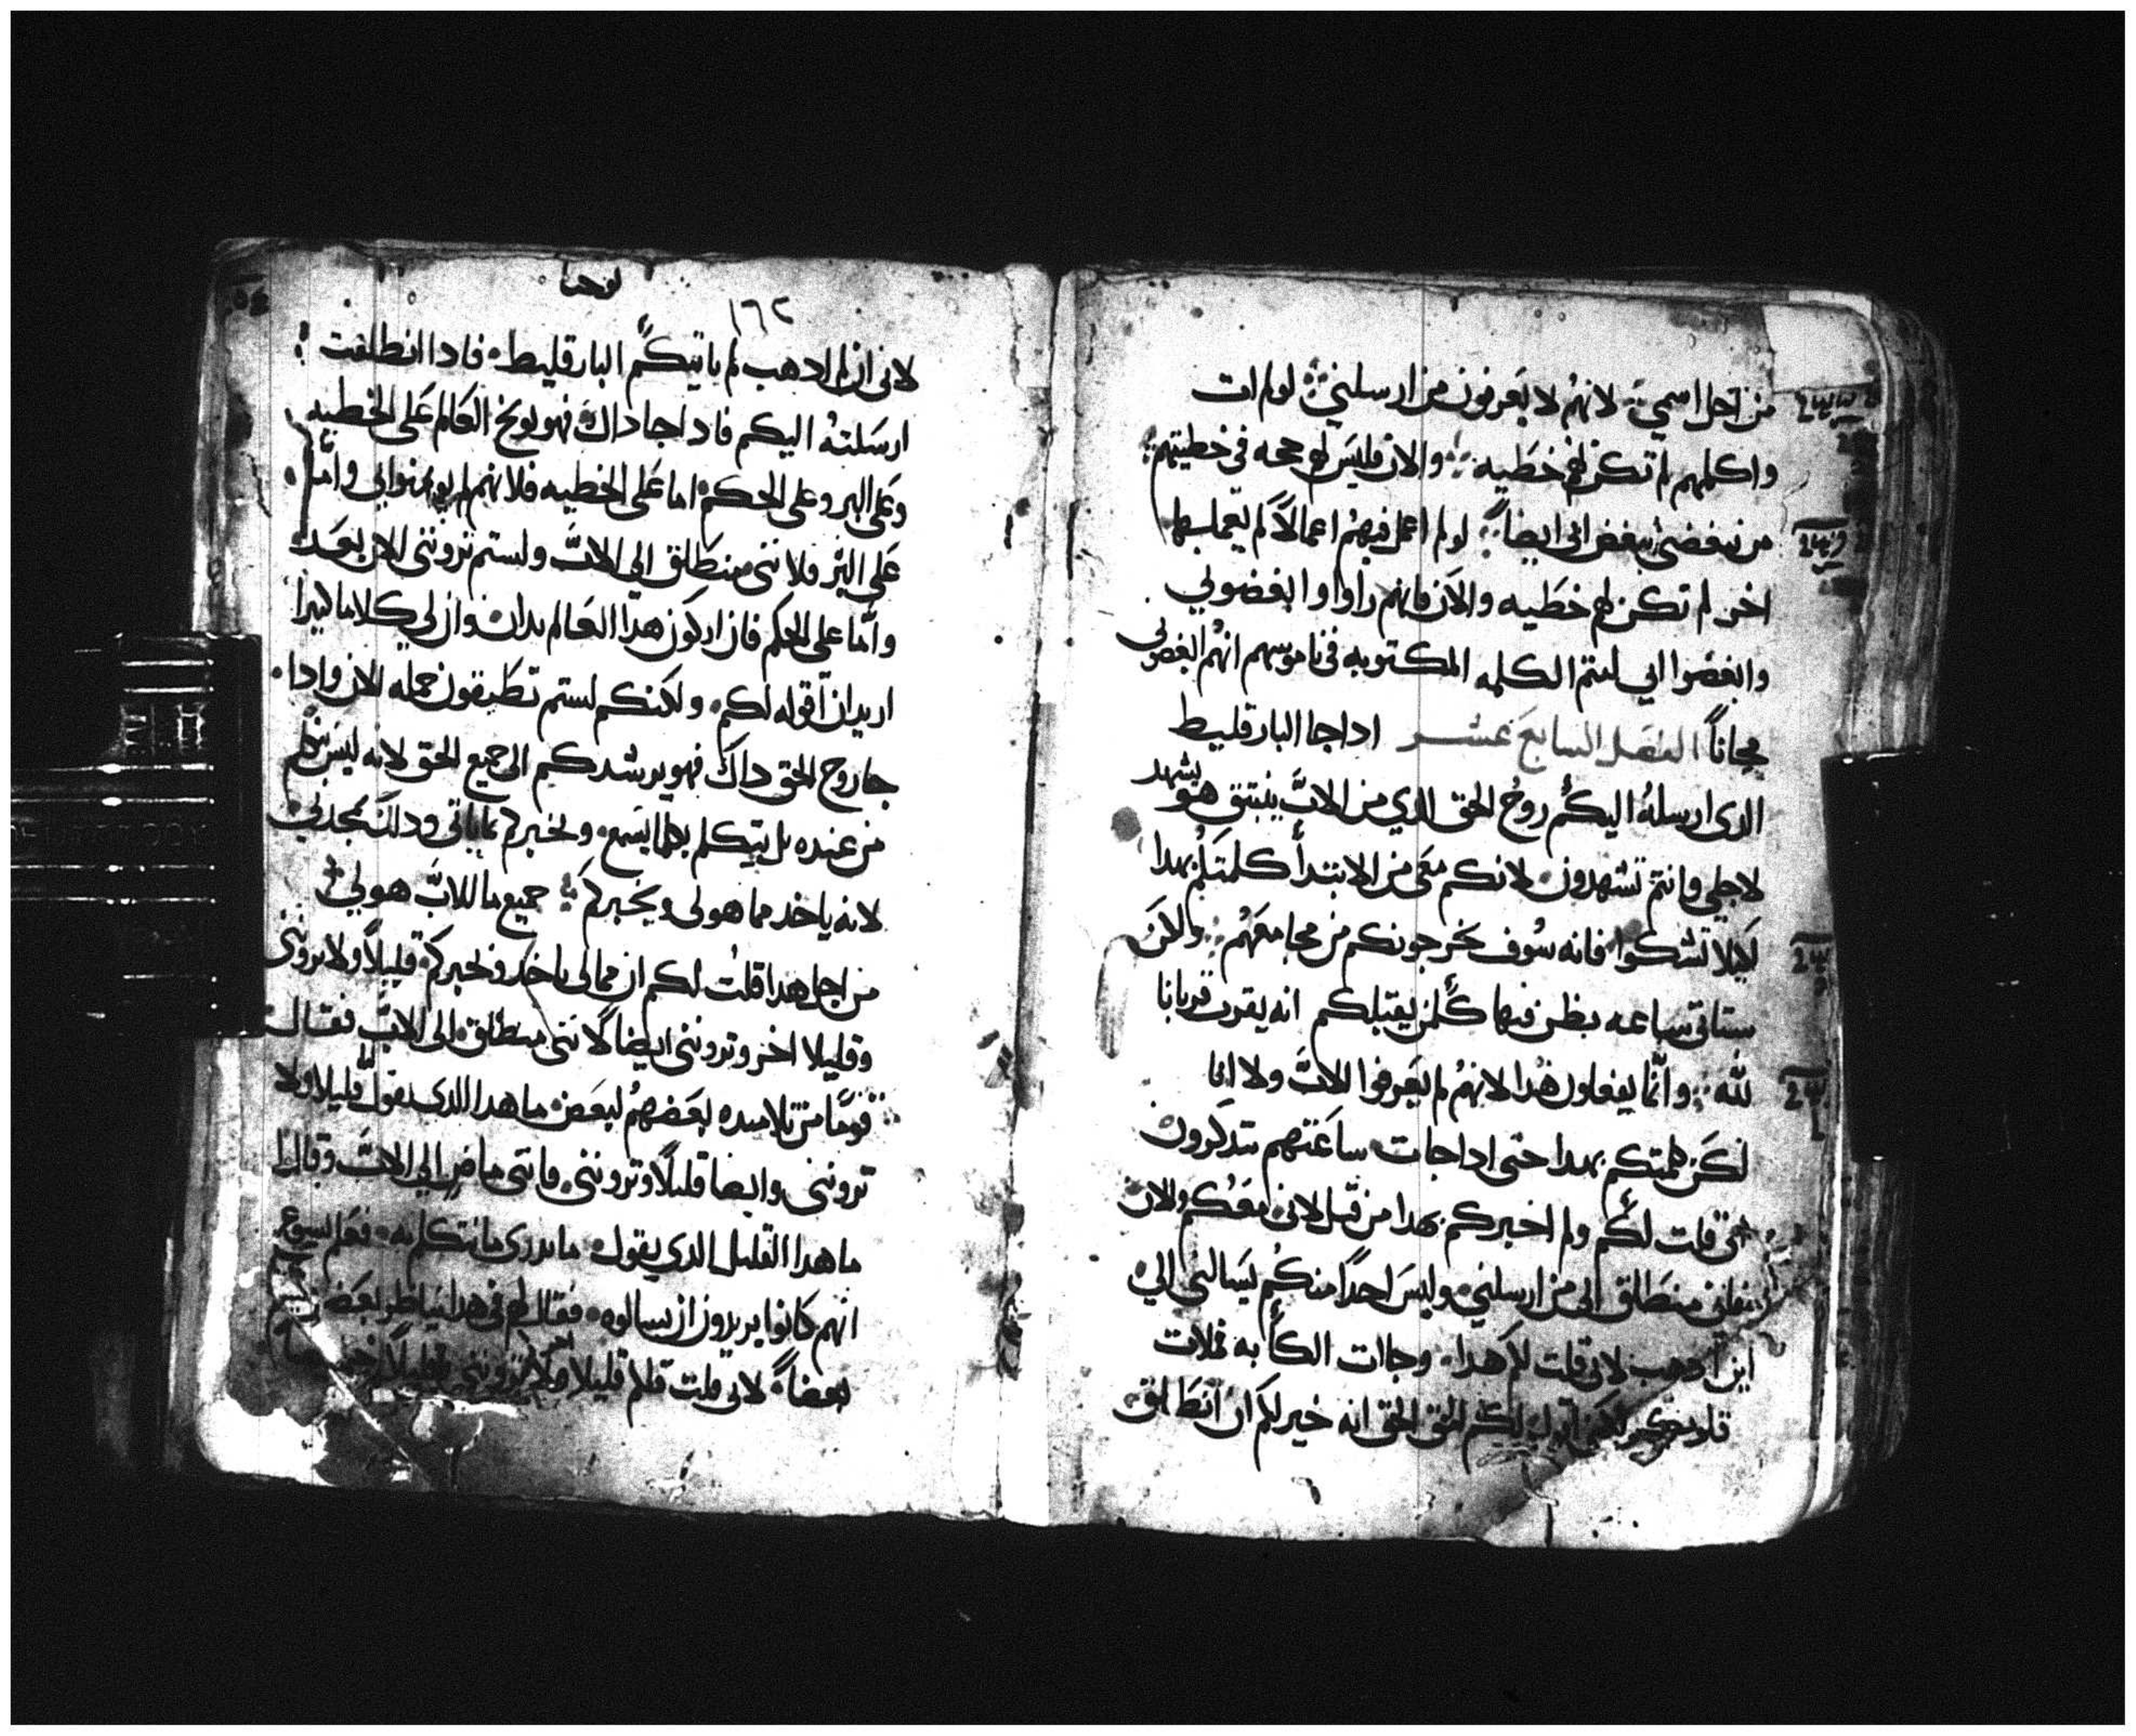 من اجل اسمي لانهم لا يعرفون من ارسلني لو لم ات
واكلمهم لم تكن لهم خطيه والان فليس لهم حجه في خطيتهم
من يبغضني يبغض ابي ايضاً لو لم اعمل فيهم اعمالاً لم يعملها
اخر لم تكن لهم خطيه والان فانهم راوا وابغضوني
وابغضوا ابي لتتم الكلمه المكتوبه في ناموسهم انهم ابغضوني
مجاناً الفصل السابع عشر اداجا البارقليط
الدي ارسله اليكم روح الحق الدي من الاب ينبثق هو يشهد
لاجلي وانتم تشهدون لانكم معي من الابتدأ كلمتكم بهدا
لكيلا تشكوا فانه سوف يخرجونكم من مجامعهم والان
ستاتي ساعه يظن فيها كلمن يقتلكم انه يقرب قربانا
لله وانما يفعلون هدا لانهم لم يعرفوا الاب ولا انا
لكن كلمتكم بهدا حتى اداجات ساعتهم تتدكرون
اني قلت لكم ولم اخبركم بهدا من قبل لاني معكم والان
فاني منطلق الى من ارسلني وليس احداً منكم يسالني الي
اين ادهب لاني قلت لكم هدا وجات الكأبه فملات
قلوبكم لكني اقول لكم الحق الحق انه خير لكم ان انطلق
يوحنا
١٦٢
لاني ان لم ادهب لم ياتيكم البارقليط فادا انطلقت
ارسلته اليكم فاد اجا داك فهو يوبخ العالم على الخطيه
وعلى البر وعلى الحكم اما على الخطيه فلانهم لم يومنوا بي واما
على البر فلانني منطلق الي الاب ولستم ترونني الان بعد
واما على الحكم فان اركون هدا العالم يدان وان لي كلاما كتيرا
اريد ان اقوله لكم ولكنكم لستم تطيقون حمله الان وادا
جا روح الحق داك فهو يرشدكم الى جميع الحق لانه ليس يتكلم
من عنده بل يتكلم بكلما يسمع ويخبركم بما ياتي وداك يمجدني
لانه ياخد مما هو لي ويخبركم جميع ما للاب هو لي
من اجل هدا قلت لكم ان مما لي ياخد ويخبركم قليلاً ولا ترونني
وقليلا اخر وترونني ايضا لانني منطلق الى الاب فقال
قوماً من تلاميده بعضهم لبعض ما هدا الدي يقول لنا قليلا ولا
ترونني وايضا قليلاً وترونني واني ماض الي الاب وقالوا
ما هدا القليل الدي يقول ما ندري ما نتكلم به فعلم يسوع
انهم كانوا يريدون ان يسالوه فقال لهم في هدا يناظر بعضكم
بعضاً لاني قلت لكم قليلا ولا ترونني وقليلاً اخر